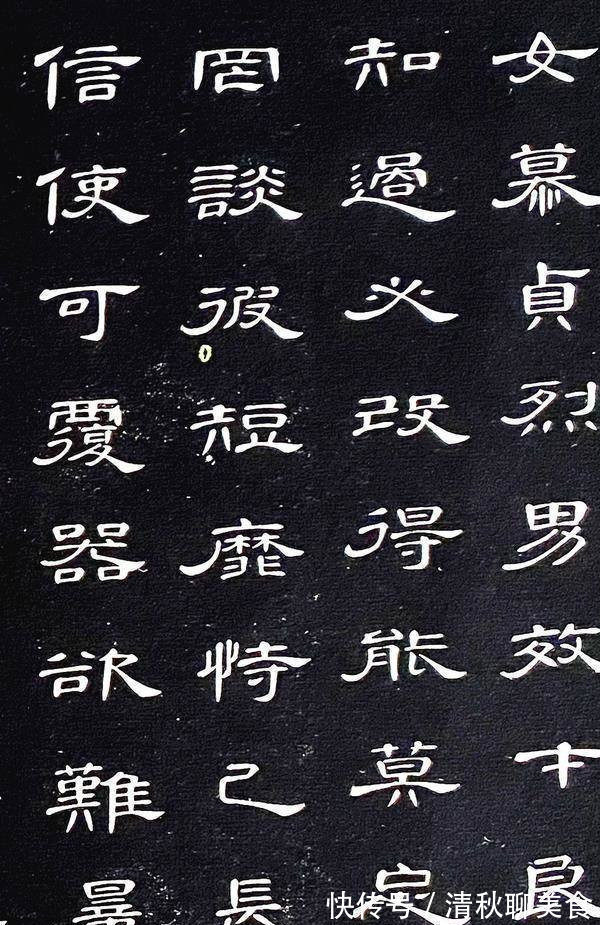 女慕貞烈男效才良
知過必改得能莫忘
罔談彼短靡恃己長
信使可覆器欲難量
快传号 / 清秋聊美食